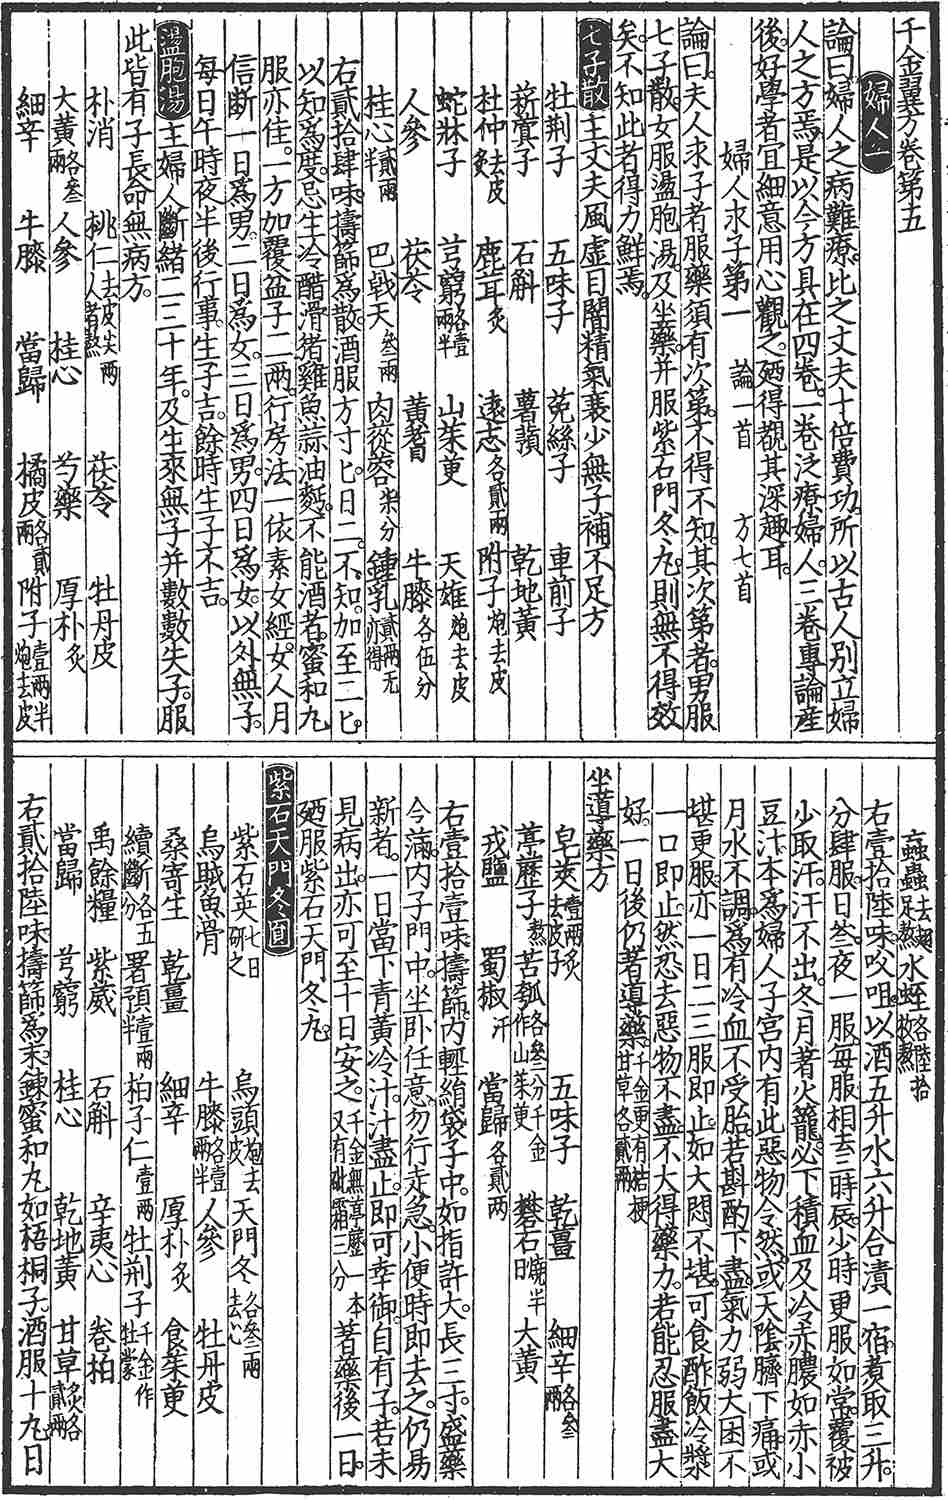 千金翼方卷第五
婦人一
論曰婦人之病難療比之丈夫十倍費功所以古人別立婦
人之方焉是以今方具在四卷一卷泛療婦人三卷專論産
後好學者宜細意用心觀之廼得覩其深趣耳
婦人求子第一 論一首 方七首
論曰夫人求子者服藥須有次第不得不知其次第者男服
七子散女服盪胞湯及坐藥并服紫石門冬丸則無不得效
矣不知此者得力鮮焉
七子散主丈夫風虛目闇精氣衰少無子補不足方
牡荆子 五味子 菟絲子 車前子
菥蓂子 石斛 薯蕷 乾地黃
杜仲去皮炙 鹿茸炙 遠志各貳兩 附子炮去皮
蛇牀子 芎藭各壹兩半 山茱萸 天雄炮去皮
人參 茯苓 黃耆 牛膝各伍分
桂心貳兩半 巴戟天叁兩 肉蓯蓉柒分 鍾乳貳兩无亦得
右貳拾肆味擣篩爲散酒服方寸匕日二不知加至二匕
以知爲度忌生冷醋滑猪雞魚蒜油麪不能酒者蜜和丸
服亦佳一方加覆盆子二兩行房法一依素女經女人月
信斷一日爲男二日爲女三日爲男四日爲女以外無子
每日午時夜半後行事生子吉餘時生子不吉
盪胞湯主婦人斷緒二三十年及生來無子并數數失子服
此皆有子長命無病方
朴消 桃仁去皮尖兩人者熬 茯苓 牡丹皮
大黃各叁兩 人參 桂心 芍藥 厚朴炙
細辛 牛膝 當歸 橘皮各貳兩 附子壹兩半炮去皮
䖟蟲去翅足熬 水蛭各陸拾枚熬
右壹拾陸味㕮咀以酒五升水六升合漬一宿煮取三升
分肆服日叁夜一服每服相去三時辰少時更服如常覆被
少取汗汗不出冬月著火籠必下積血及冷赤膿如赤小
豆汁本爲婦人子宮内有此惡物令然或天陰臍下痛或
月水不調爲有冷血不受胎若斟酌下盡氣力弱大困不
堪更服亦一日二三服即止如大悶不堪可食酢飯冷漿
一口即止然恐去惡物不盡不大得藥力若能忍服盡大
好一日後仍著導藥千金更有桔梗甘草各貳兩
坐導藥方
皂莢壹兩炙去皮子 五味子 乾薑 細辛各叁兩
葶藶子熬 苦瓠各叁分千金作山茱萸 礬石燒半日 大黃
戎鹽 蜀椒汗 當歸各貳兩
右壹拾壹味擣篩内輕絹袋子中如指許大長三寸盛藥
令滿内子門中坐卧任意勿行走急小便時即去之仍易
新者一日當下青黃冷汁汁盡止即可幸御自有子若未
見病出亦可至十日安之千金無葶藶一本又有砒霜三分著藥後一日
廼服紫石天門冬丸
紫石天門冬圓
紫石英七日研之 烏頭炮去皮 天門冬各叁兩去心
烏賊魚骨 牛膝各壹兩半 人參 牡丹皮
桑寄生 乾薑 細辛 厚朴炙 食茱萸
續斷各五分 署預壹兩半 柏子仁壹兩 牡荆子千金作牡蒙
禹餘糧 紫葳 石斛 辛夷心 卷柏
當歸 芎藭 桂心 乾地黃 甘草各貳兩炙
右貳拾陸味擣篩爲末鍊蜜和丸如梧桐子酒服十丸日